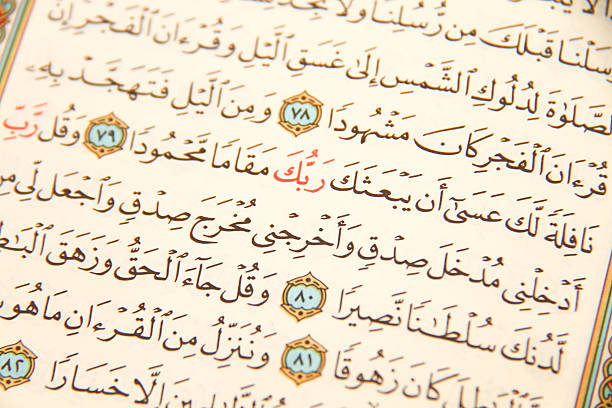 مِن رُّسُلِنَا وَلَا
ٱلصَّلَوٰةَ لِدُلُوكِ ٱلشَّمْسِ إِلَىٰ غَسَقِ ٱلَّيْلِ وَقُرْءَانَ ٱلْفَجْرِ إِنَّ
قُرْءَانَ ٱلْفَجْرِ كَانَ مَشْهُودًا ٧٨ وَمِنَ ٱلَّيْلِ فَتَهَجَّدْ بِهِۦ
نَافِلَةً لَّكَ عَسَىٰٓ أَن يَبْعَثَكَ رَبُّكَ مَقَامًا مَّحْمُودًا ٧٩ وَقُل رَّبِّ
أَدْخِلْنِى مُدْخَلَ صِدْقٍ وَأَخْرِجْنِى مُخْرَجَ صِدْقٍ وَٱجْعَل لِّى مِن
لَّدُنكَ سُلْطَـٰنًا نَّصِيرًا ٨٠ وَقُلْ جَآءَ ٱلْحَقُّ وَزَهَقَ
كَانَ زَهُوقًا ٨١ وَنُنَزِّلُ مِنَ ٱلْقُرْءَانِ مَا هُوَ
إِلَّا خَسَارًا ٨٢